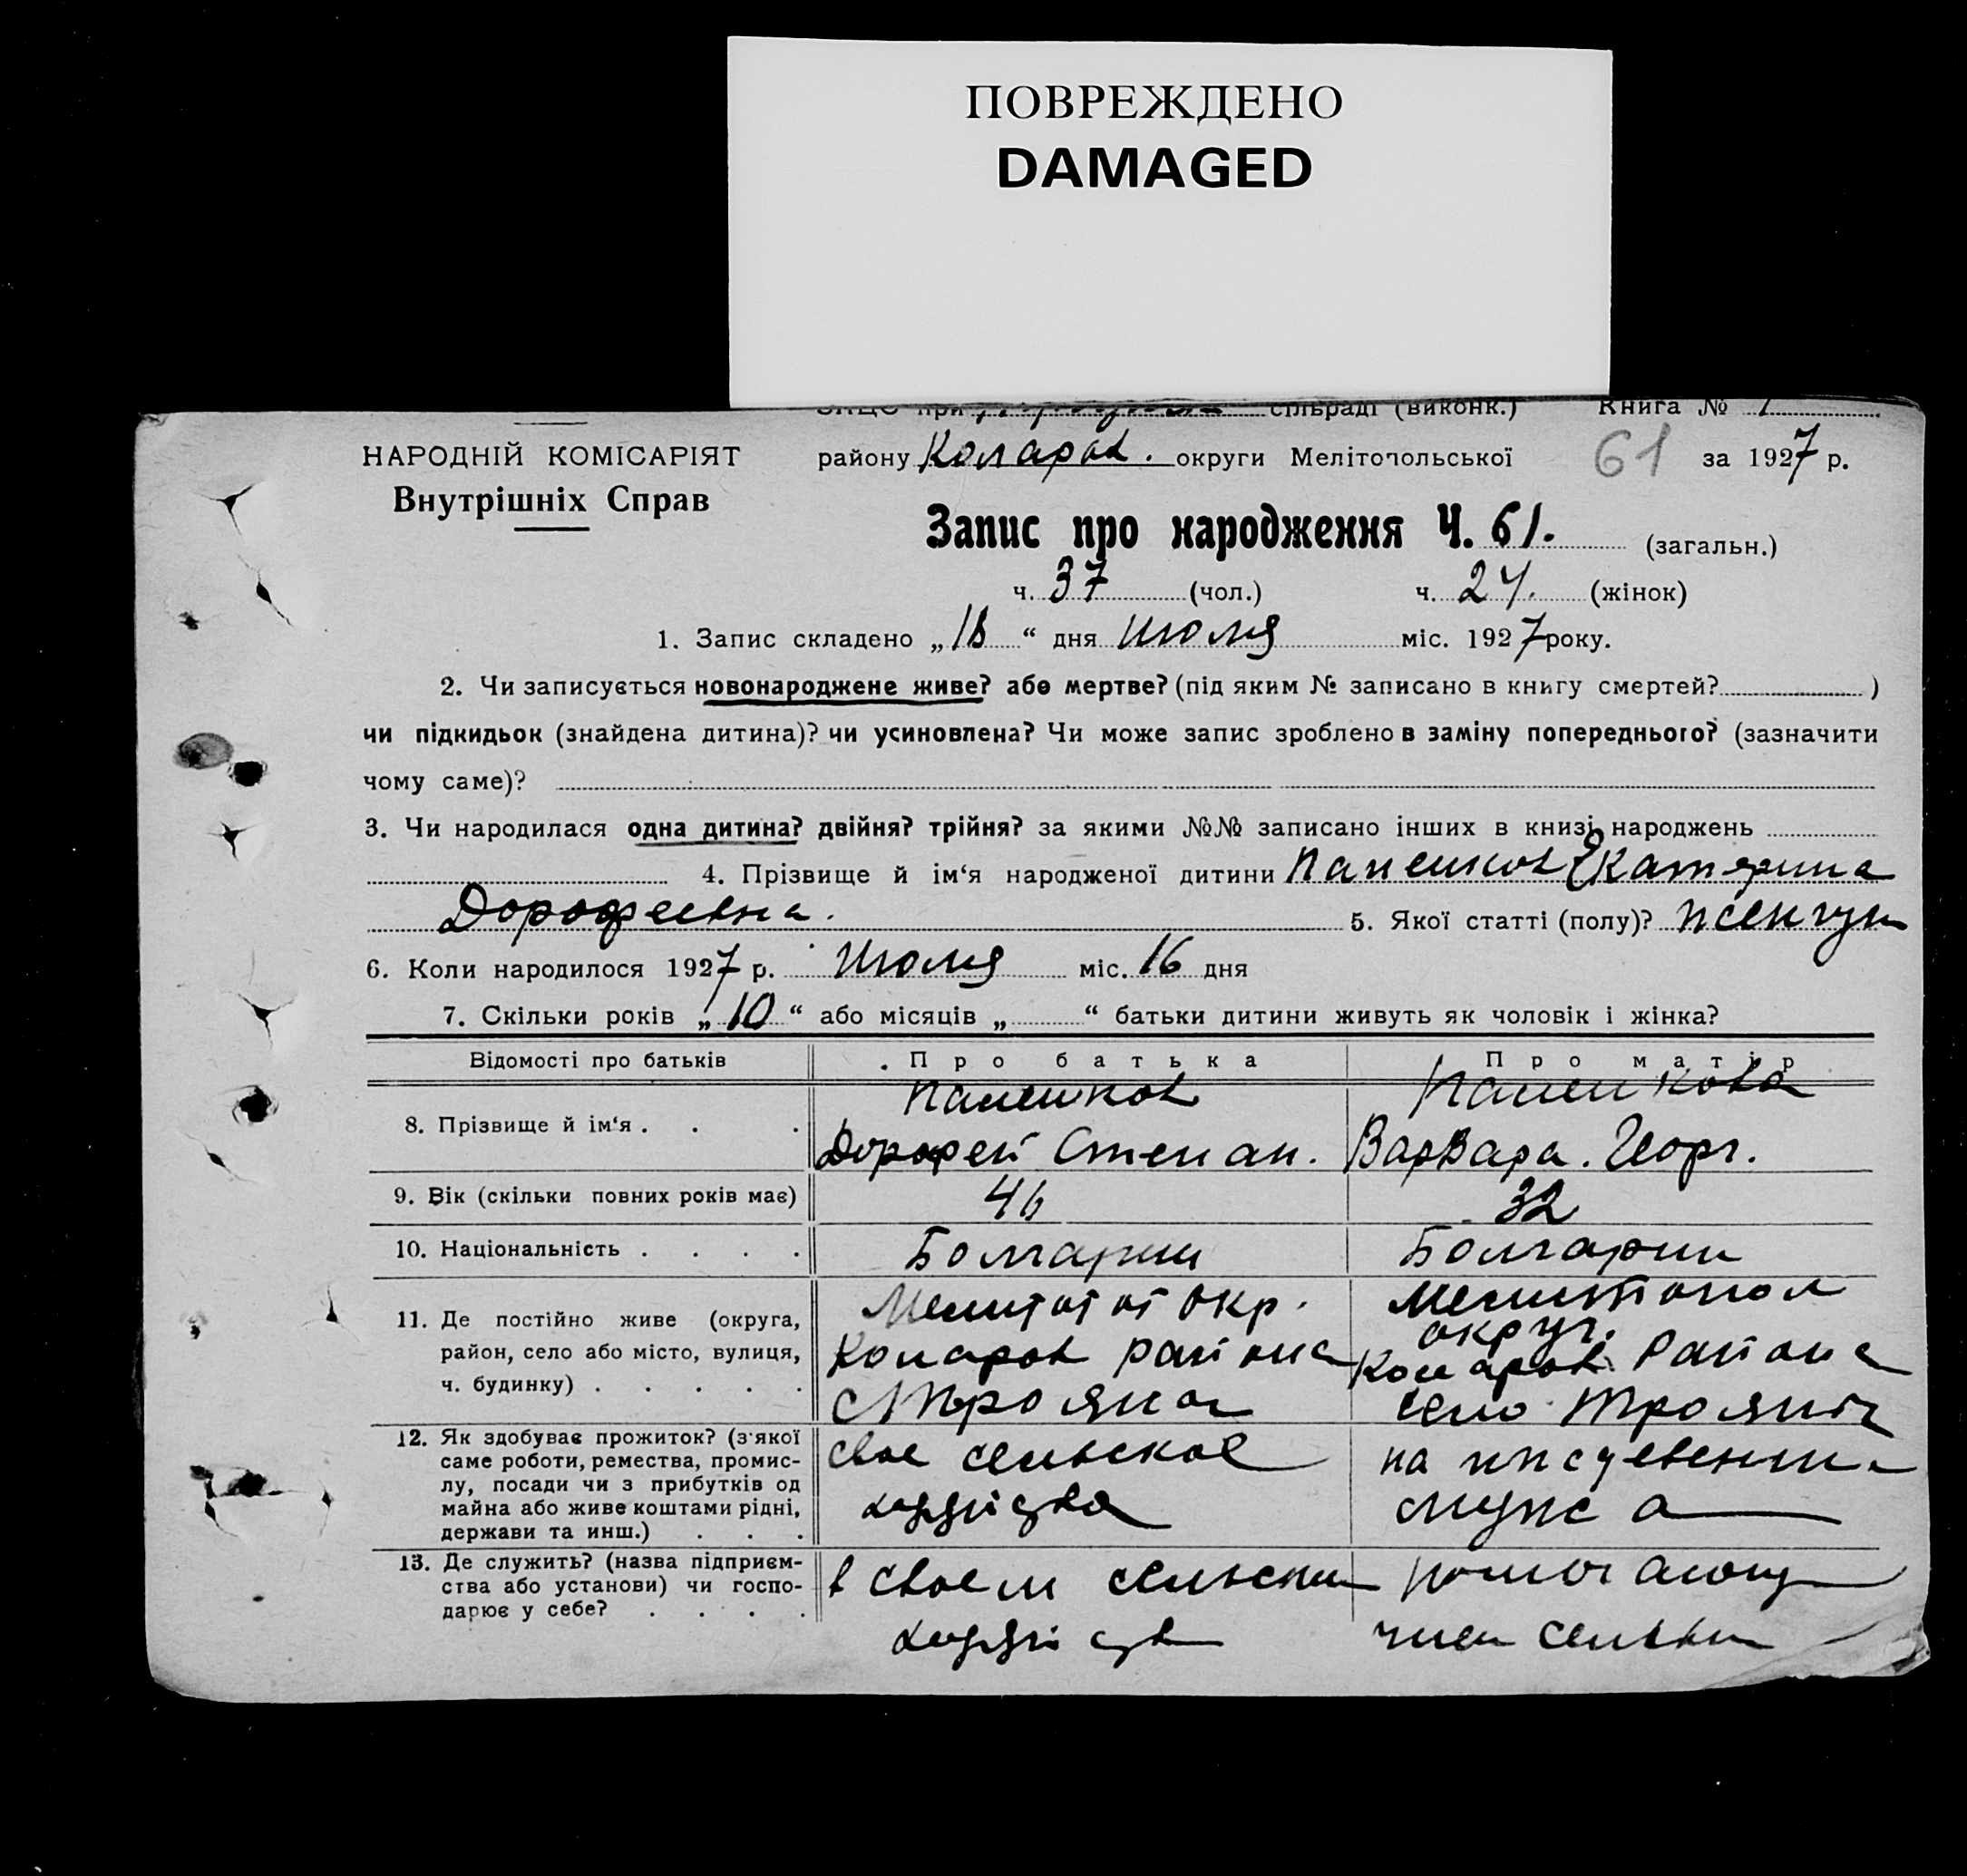 ПОВРЕЖДЕНО
DAMAGED
ЗАЦС при сільраді (виконк.) Книга № 1
НАРОДНІЙ КОМІСАРІЯТ
району Коларов. округи Мелітопольської 61 за 1927 р.
Внутрішніх Справ
Запис про народження Ч. 61. (загальн.)
ч. 37 (чол.) ч. 24. (жінок)
1. Запис складено „18“ дня Июля міс. 1927 року.
2. Чи записується новонароджене живе? або мертве? (під яким № записано в книгу смертей? )
чи підкидьок (знайдена дитина)? чи усиновлена? Чи може запис зроблено в заміну попереднього? (зазначити
чому саме)?
3. Чи народилася одна дитина? двійня? трійня? за якими №№ записано інших в книзі народжень
4. Прізвище й ім‘я народженої дитини Екатерина
Дорофеевна. 5. Якої статті (полу)?
6. Коли народилося 1927 р. Июля міс. 16 дня
7. Скільки років „10“ або місяців „ “ батьки дитини живуть як чоловік і жінка?
Відомості про батьків Про батька Про матір
8. Прізвище й ім‘я . . . Дорофей Степан. Варвара. Георг.
9. Вік (скільки повних років має) 46 32
10. Національність . . . . Болгарин Болгарии
11. Де постійно живе (округа, окр. Мелитопол
район, село або місто, вулиця, Коларов района округ. Коларов Района
ч. будинку) . . . . . с Трояны село Трояны
12. Як здобуває прожиток? (з‘якої свое сельское на
саме роботи, ремества, промис-
лу, посади чи з прибутків од
майна або живе коштами рідні, мужа
держави та инш.) . . .
13. Де служить? (назва підприєм- в своем сельском
ства або установи) чи госпо-
дарює у себе? . . . . член